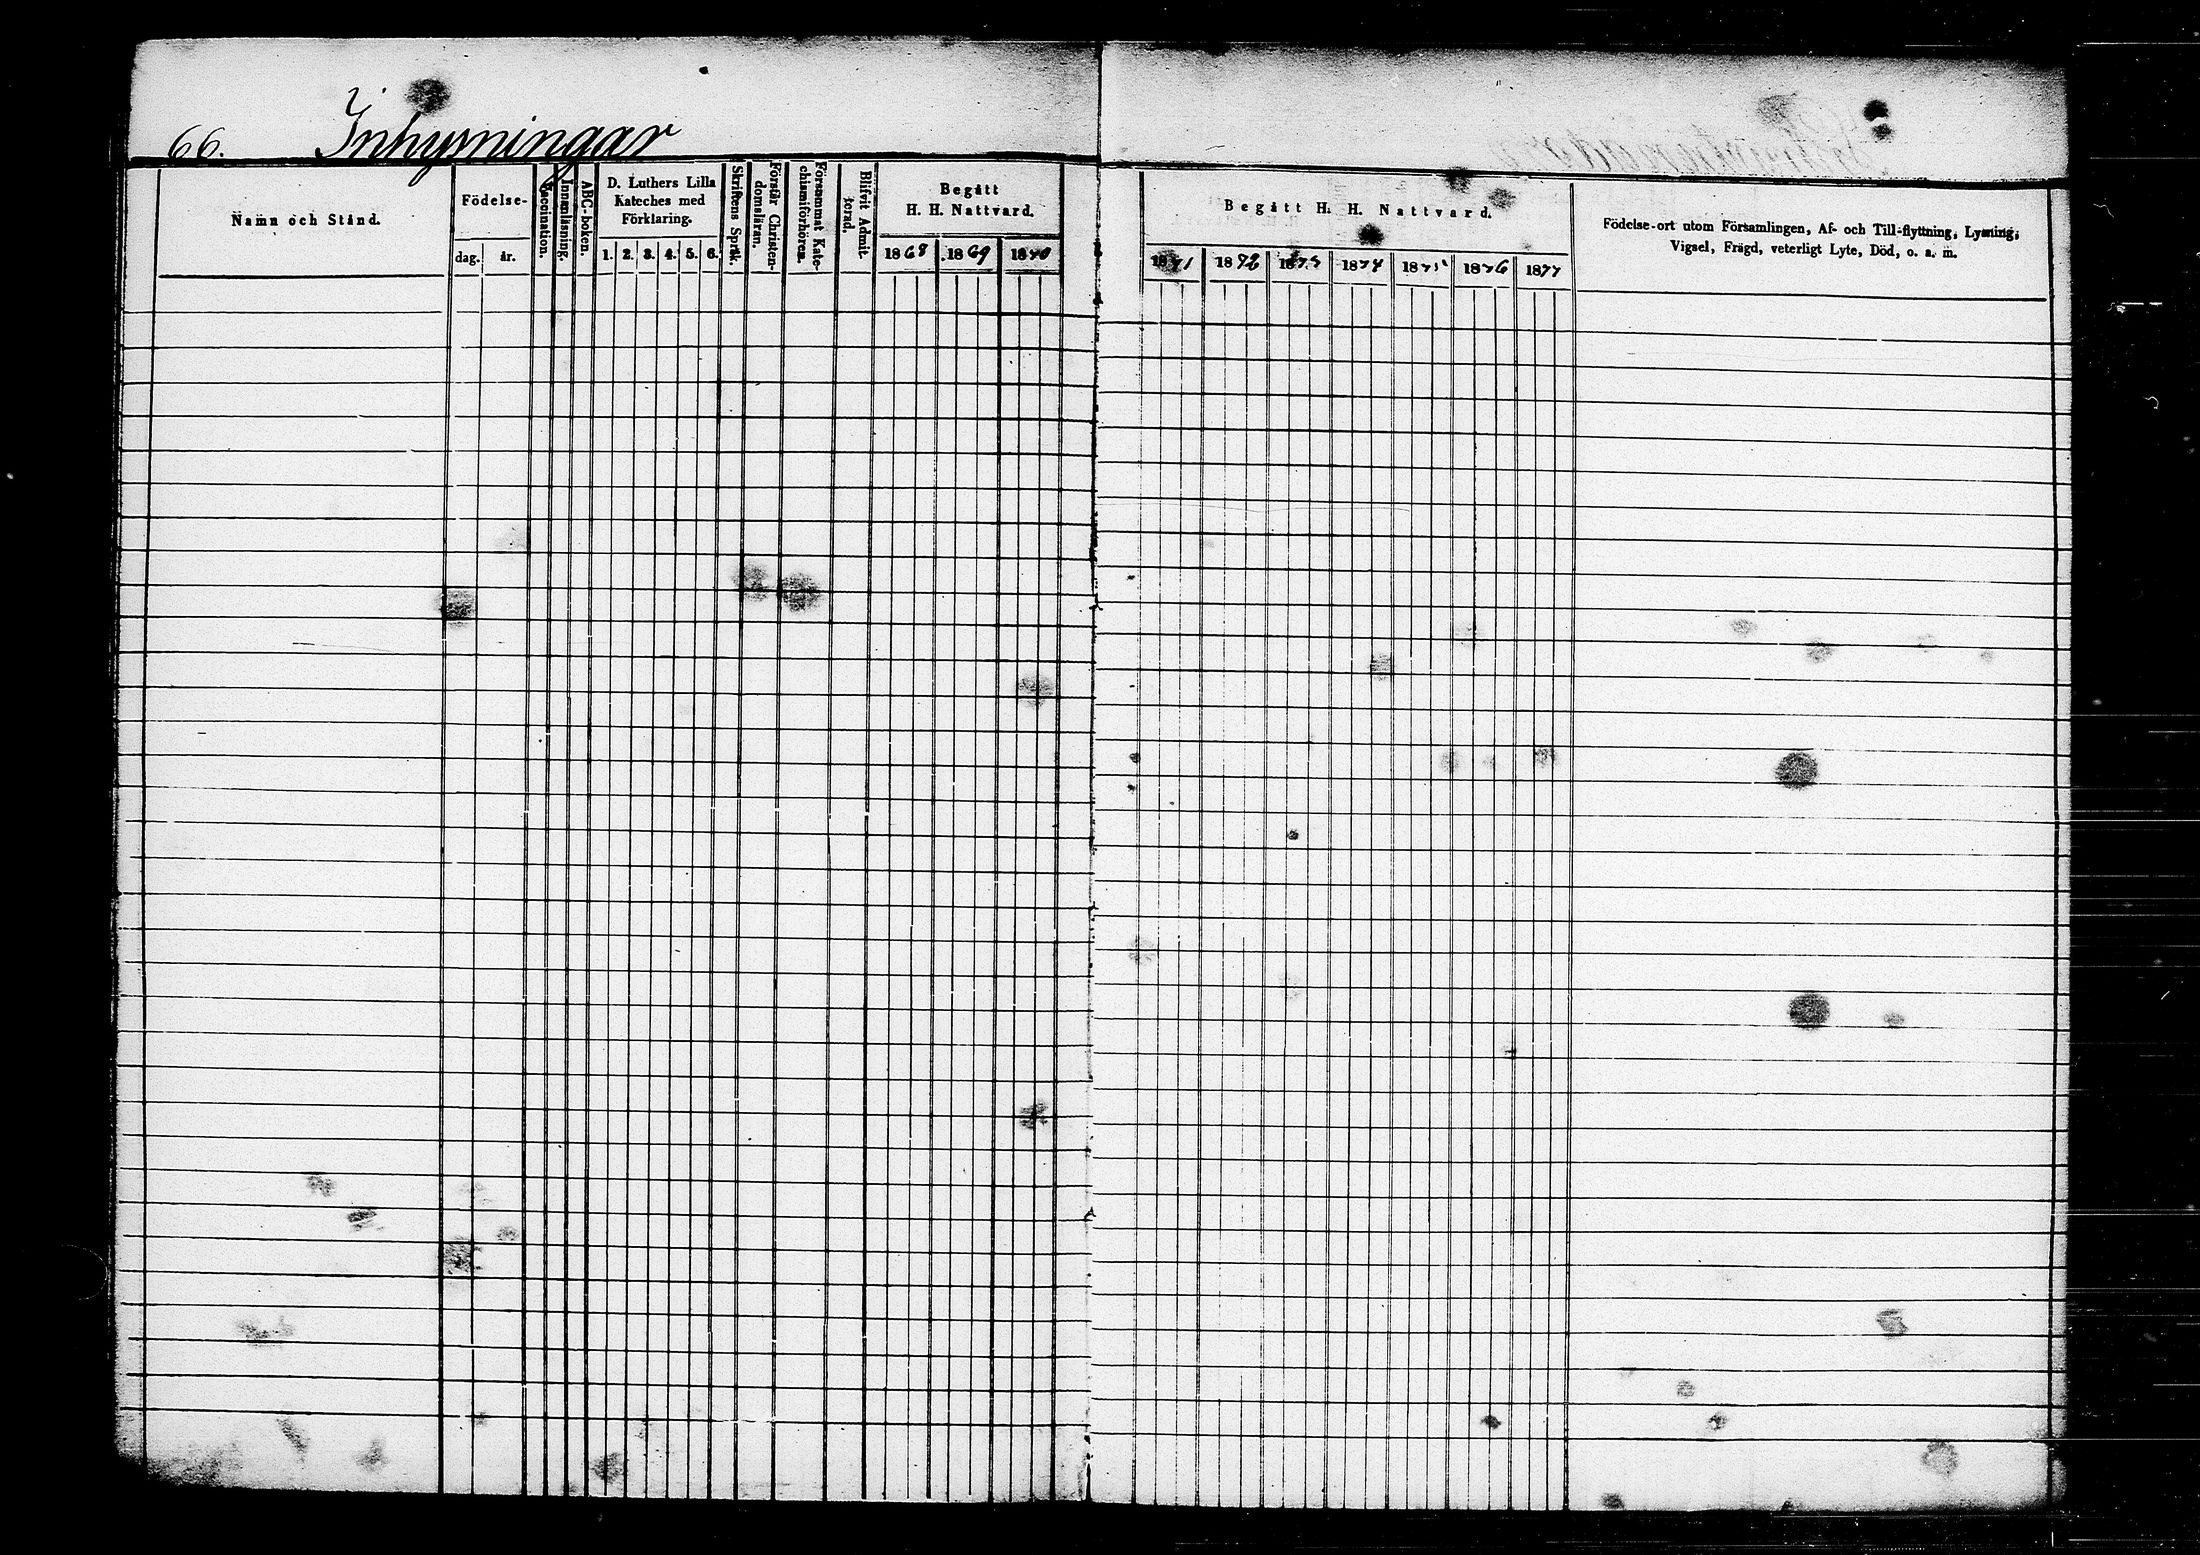 66. Inhysningar
Namn och Stånd.
Födelse-
dag. år.
Vaccination.
Innanläsning.
ABC-boken.
D. Luthers Lilla
Kateches med
Förklaring.
1. 2. 3. 4. 5. 6.
Skriftens Språk.
Förstår Christen-
domsläran.
Församnat Kate-
chismiförhören.
Blifvit Admit-
terad.
Begått
H. H. Nattvard.
1868 1869 1870
Begått H. H. Nattvard.
1871 1872 1873 1874 1875 1876 1877
Födelse-ort utom Församlingen, Af- och Till-flyttning, Lysning,
Vigsel, Frägd, veterligt Lyte, Död, o. a. m.